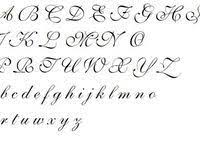 A B C D E F G H
J K L M N O
P R T U W X Y Z
a b c d e f g h i j k l m n o
r t u w x y z